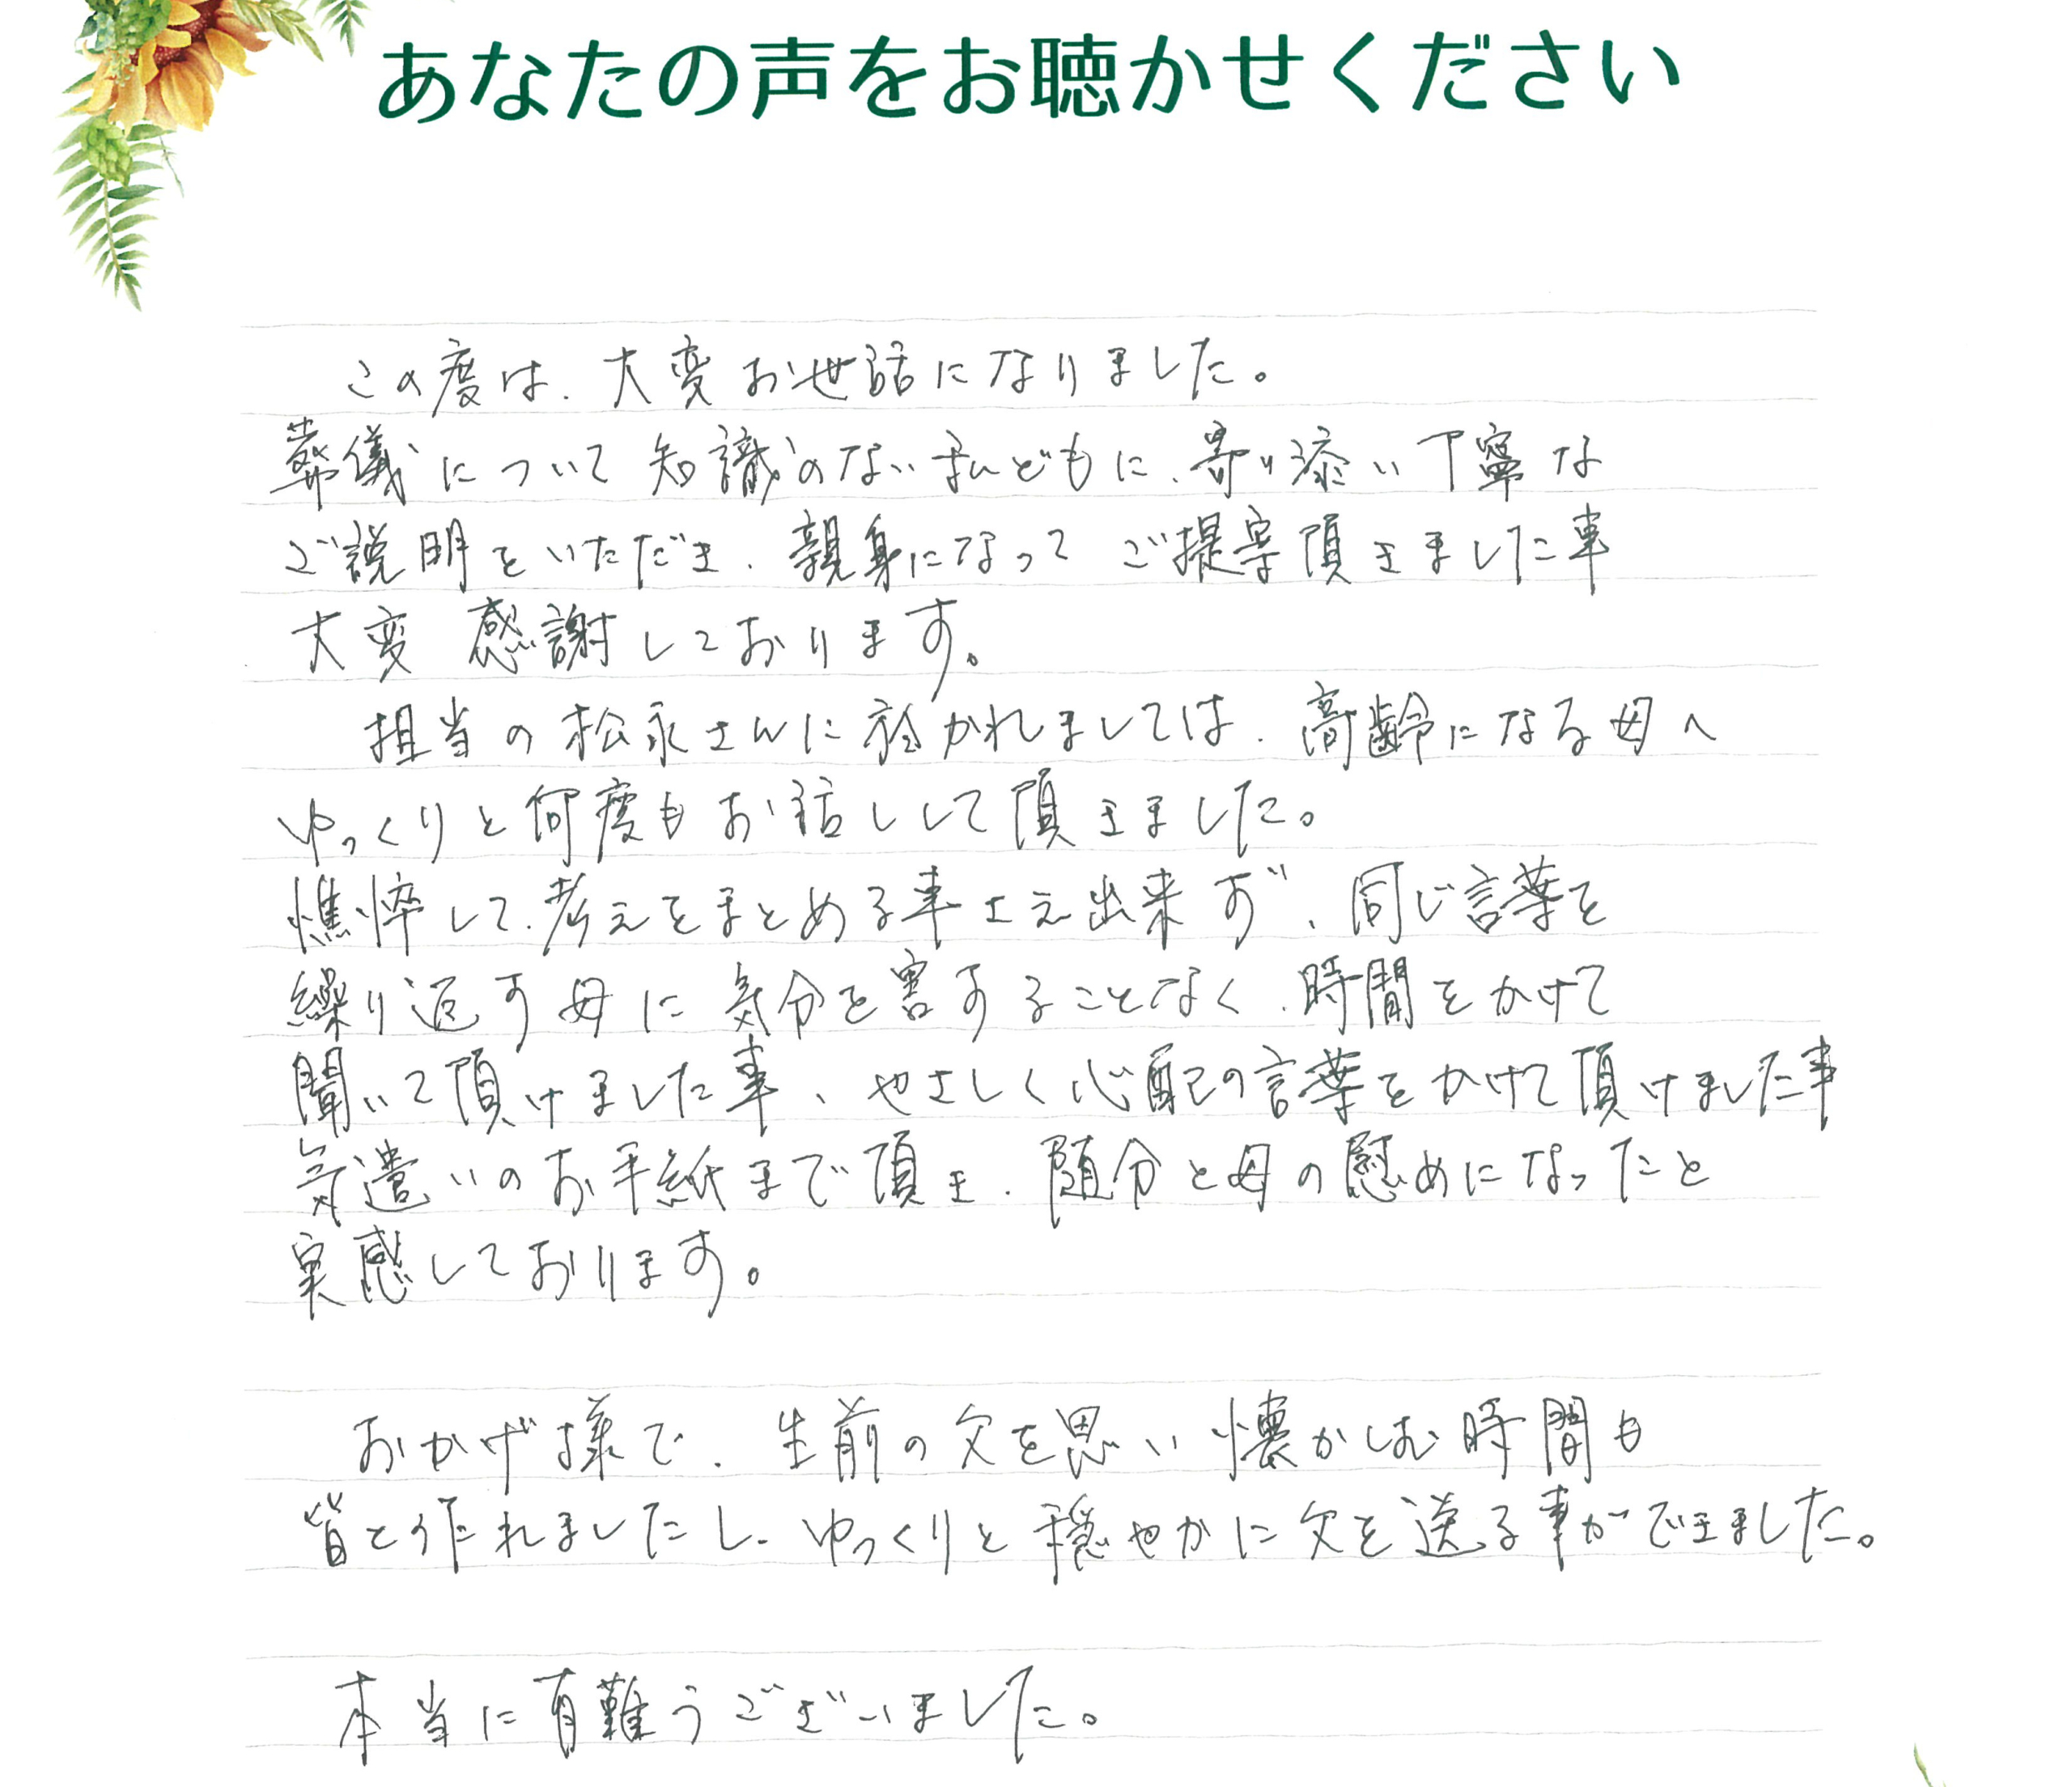 あなたの声をお聴かせください
この度は、大変お世話になりました。
葬儀について知識のない私どもに、寄り添い丁寧な
ご説明をいただき、親身になってご提案頂きました事
大変感謝しております。
担当の松永さんに於かれましては、高齢になる母へ
ゆっくりと何度もお話しして頂きました。
憔悴して、考えをまとめる事さえ出来ず、同じ言葉を
繰り返す母に気分を害することなく、時間をかけて
聞いて頂けました事、やさしく心配の言葉をかけて頂けました事
気遣いのお手紙まで頂き、随分と母の慰めになったと
実感しております。
おかげ様で、生前の父を思い懐かしむ時間も
皆と作れましたし、ゆっくりと穏やかに父を送る事ができました。
本当に有難うございました。